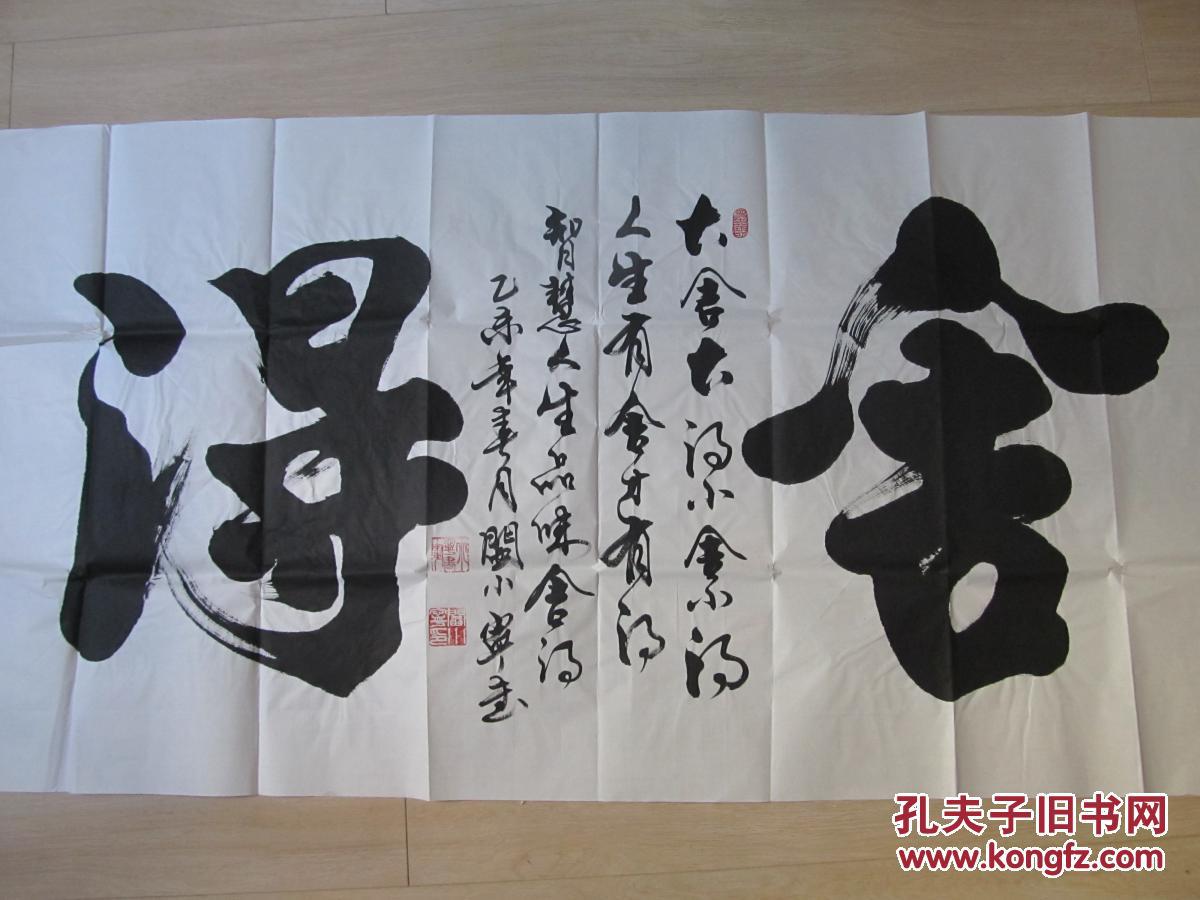 舍
大舍大得小舍小得
人生有舍才有得
智慧人生品味舍得
乙未年春月闫小宁书
得
孔夫子旧书网
www.kongfz.com